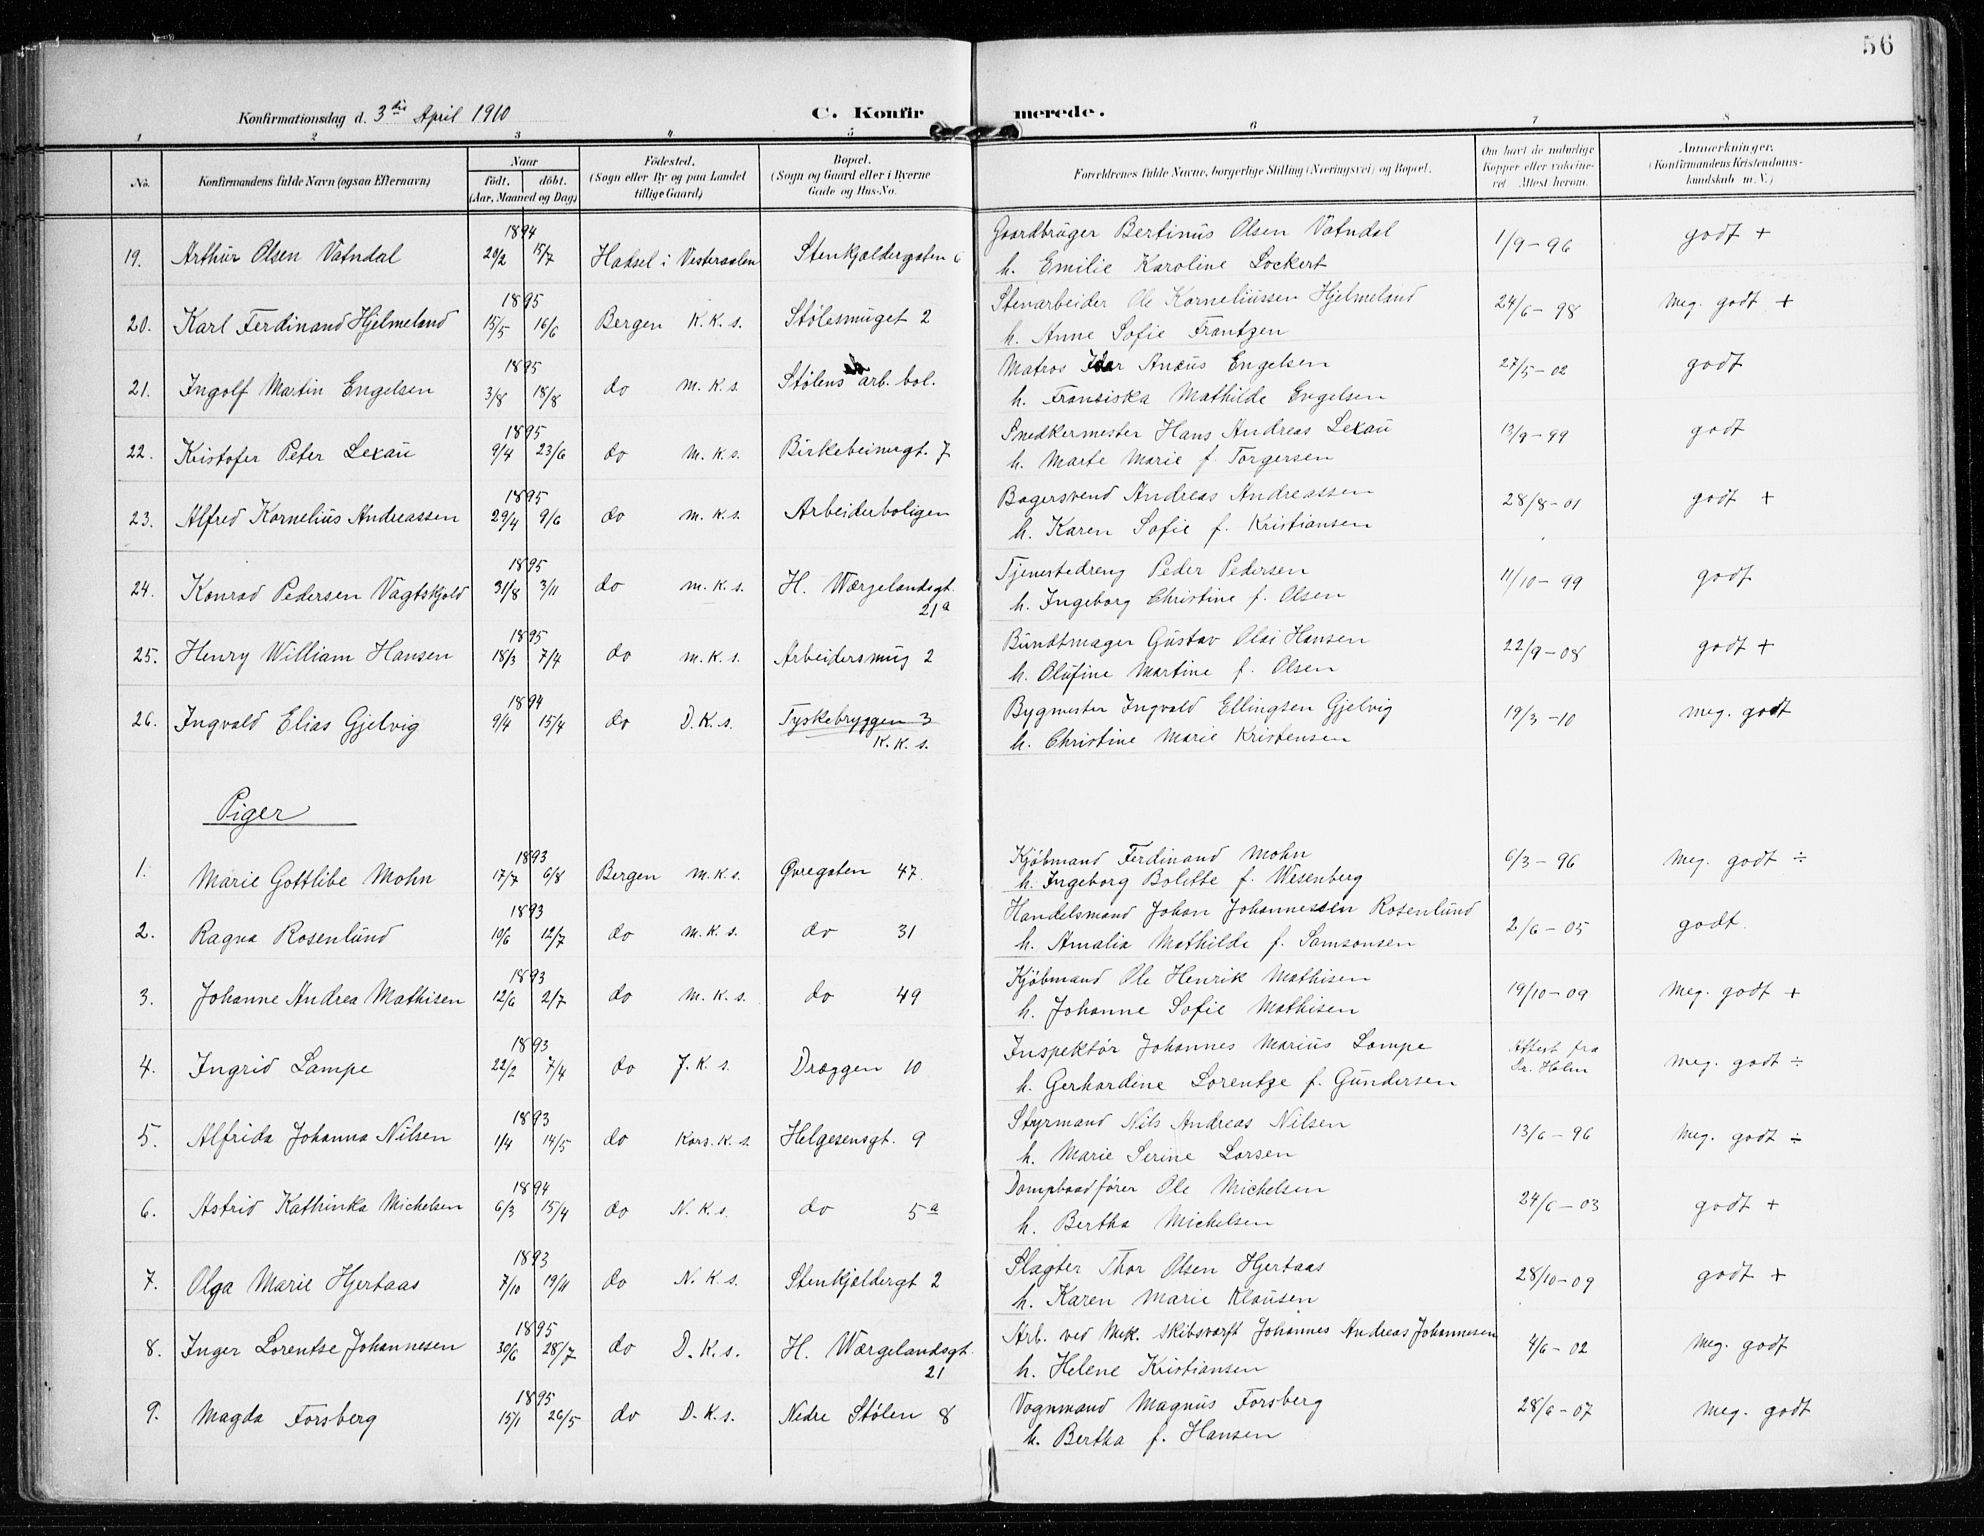 56
Konfirmationsdag d. 3die April 1910
C. Konfirmerede.
1 2 3 4 5 6 7 8
No. Konfirmandens fulde Navn (ogsaa Efternavn)
Naar
født. døbt.
(Aar, Maaned og Dag)
Födested.
(Sogn eller By og paa Landet
tillige Gaard)
Bopæl.
(Sogn og Gaard eller i Byerne
Gade og Hus-No.
Forældrenes fulde Navne, borgerlige Stilling (Næringsvei) og Bopæl.
Om havt de naturlige
Kopper eller vaccine-
ret Attest herom.
Anmærkninger.
(Konfirmandens Kristendoms-
kundskab m. V.)
1894
19. Arthur Olsen Vatndal 20/2 15/7 Hadsel i Vesteraalen Stenkjeldergaten 6 Gaardbruger Bertinus Olsen Vatndal 1/9-96 godt +
h. Emilie Karoline Lockert
1895
20. Karl Ferdinand Hjelmeland 15/5 16/6 Bergen K.K.s. Stølesmuget 2 Stenarbeider Ole Korneliussen Hjelmeland 24/6-98 Meg. godt +
h. Anne Sofie Frantzen
1895
21. Ingolf Martin Engelsen 3/8 18/8 do M.K.s. Stølens arb. bol. Matros Ancus Engelsen 27/5-02 godt
h. Fransiska Mathilde Engelsen
1895
22. Kristofer Peter Lexau 9/4 23/6 do M.K.s. Birkebeinergt. 7 Snedkermester Hans Andreas Lexau 13/9-99 godt
h. Marte Marie f. Torgersen
1895
23. Alfred Kornelius Andreassen 29/4 9/6 do M.K.s. Arbeiderboligen Bagersvend Andreas Andreassen 28/8-01 godt +
h. Karen Sofie f. Kristiansen
1895
24. Konrad Pedersen Vagtskjold 31/8 3/11 do M.K.s. H. Wærgelandsgt. 21a Tjenestedreng Peder Pedersen 11/10-99 godt
h. Ingeborg Christine f. Olsen
1895
25. Henry William Hansen 18/3 7/4 do M.K.s. Arbeidersmug 2 Bundtmager Gustav Olai Hansen 22/9-08 godt +
h. Olufine Martine f. Olsen
1894
26. Ingvald Elias Gjelvig 9/4 15/4 do D.K.s. Tyskebryggen 3 K.K.s. Bygmester Ingvald Ellingsen Gjelvig 19/3-10 Meg. godt
h. Christine Marie Kristensen
Piger
1893
1. Marie Gottlibe Mohn 17/7 6/8 Bergen M.K.s. Øvregaten 47. Kjøbmand Ferdinand Mohn 6/3-96 Meg. godt ÷
h. Ingeborg Bolette f. Wesenberg
1893
2. Ragna Rosenlund 19/6 12/7 do M.K.s. do 31 Handelsmand Johan Johannessen Rosenlund 2/6-05 godt.
h. Amalia Mathilde f. Samsonsen
1893
3. Johanne Andrea Mathisen 12/6 2/7 do M.K.s. do 49 Kjøbmand Ole Henrik Mathisen 19/10-09 Meg. godt +
h. Johanne Sofie Mathisen
1893
4. Ingrid Lampe 22/2 7/4 do J.K.s. Dræggen 10 Inspektør Johannes Marius Lampe Attest fra Dr. Holm Meg. godt ÷
h. Gerhardine Lorentze f. Gundersen
1893
5. Alfrida Johanna Nilsen 1/4 14/5 do Kors.K.s. Helgesensgt. 9 Styrmand Nils Andreas Nilsen 13/6-96 Meg. godt ÷
h. Marie Serine Larsen
1894
6. Astrid Kathinka Michelsen 6/3 15/4 do N.K.s. do 5a Dampbaadfører Ole Michelsen 24/6-03 godt +
h. Bertha Michelsen
1893
7. Olga Marie Hjertaas 7/10 19/11 do N.K.s. Stenkjeldergt 2 Slagter Thor Olsen Hjertaas 28/10-09 godt +
h. Karen Marie Klausen
1895
8. Inger Lorentse Johannesen 30/6 28/7 do D.K.s. H. Wærgelandsgt. 21 Arb. ved Mek. Skibsværft Johannes Andreas Johannesen 4/6-02 Meg. godt
h. Helene Kristiansen
1895
9. Magda Forsberg 15/1 26/5 do D.K.s. Nedre Stølen 8 Vognmand Magnus Forsberg 28/6-07 Meg. godt
h. Bertha f. Hansen